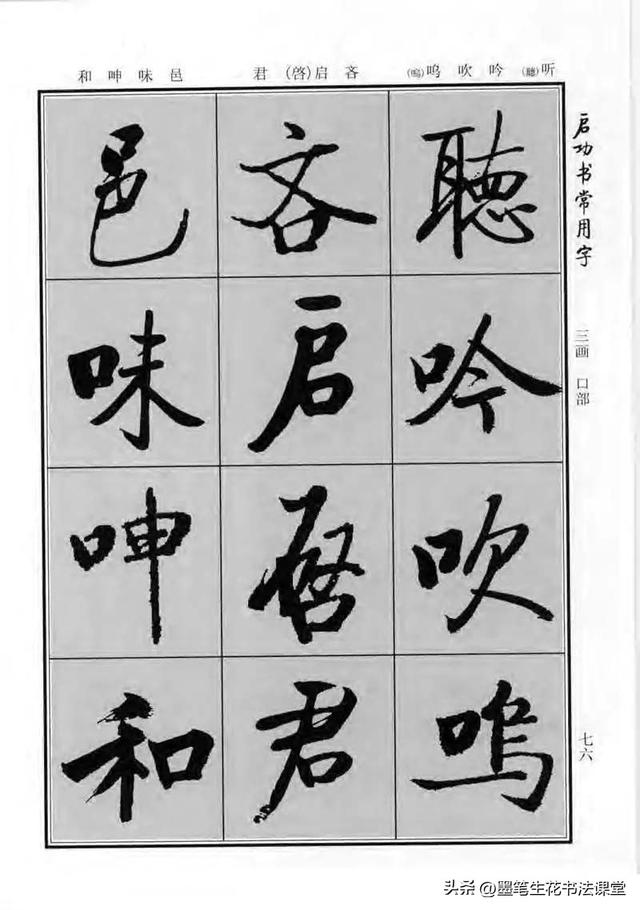 启功书常用字
三画 口部
七六
听(聽)吟吹呜(嗚)
吝启(啓)君
邑味呻和
聽吟吹嗚
吝启啓君
邑味呻和
头条 @墨笔生花书法课堂